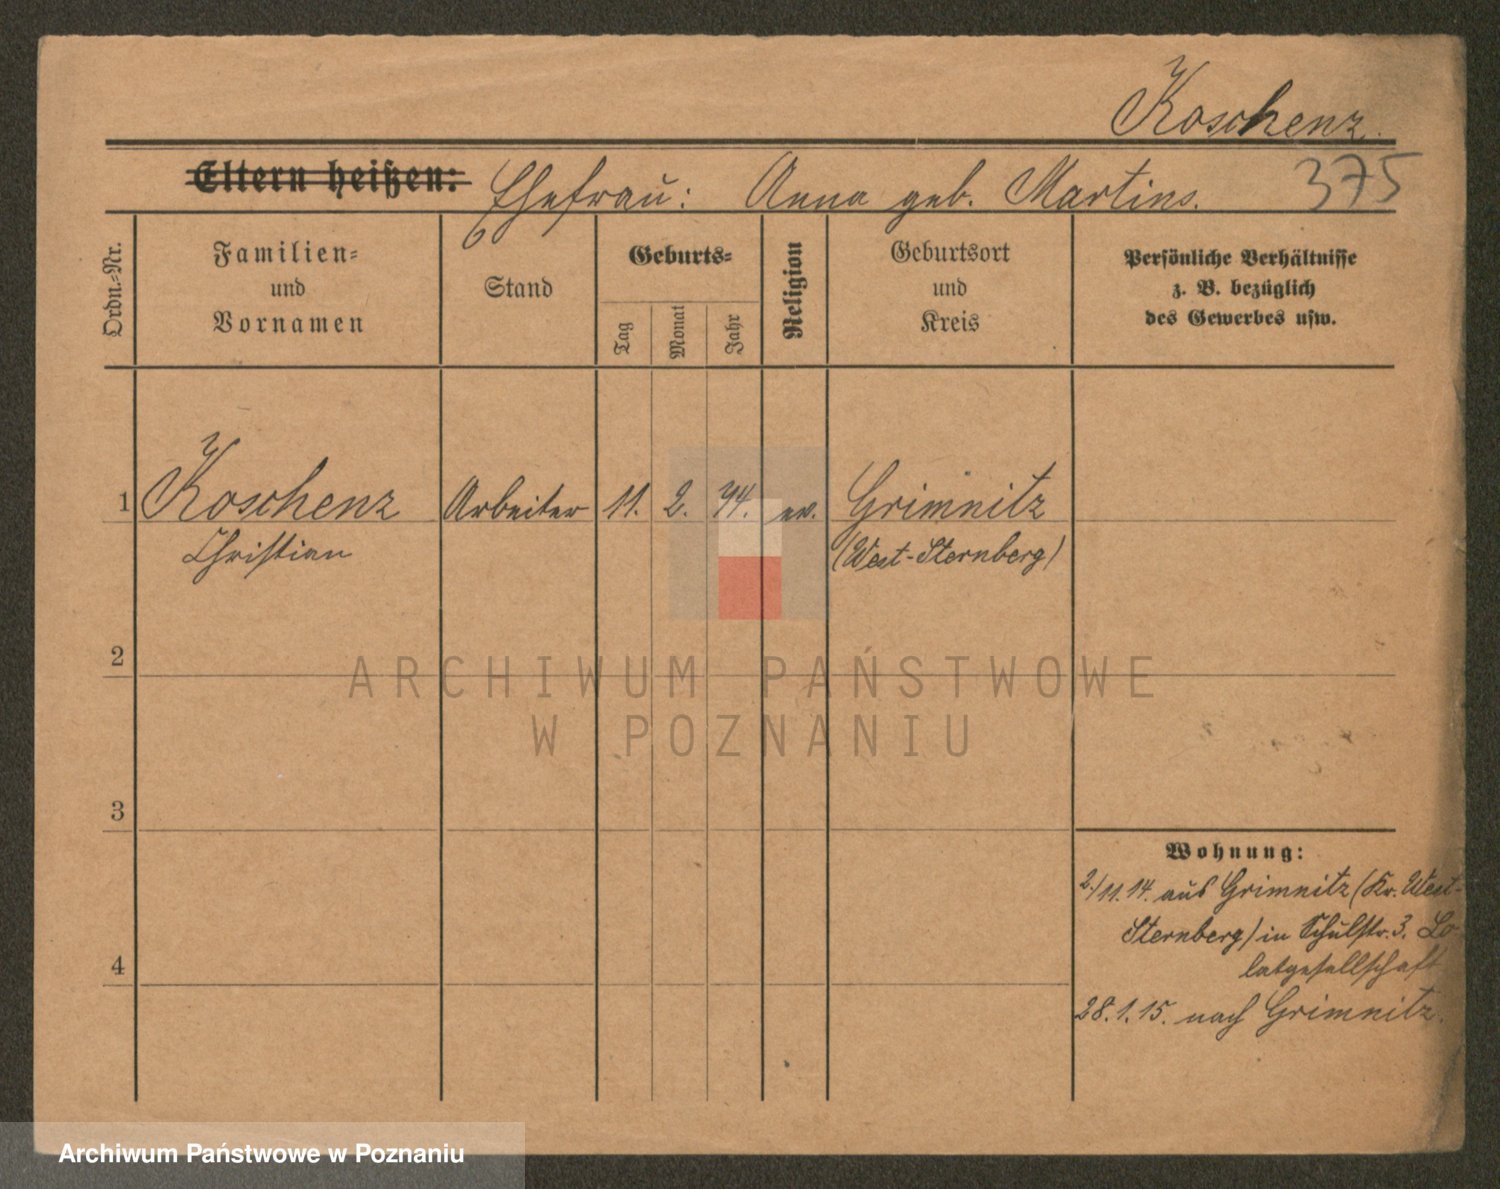 Koschenz.
Eltern heißen: Ehefrau: Anna geb. Martins. 375
Ordn.=Nr.
Familien=
und
Vornamen
Stand
Geburts=
Tag
Monat
Jahr
Religion
Geburtsort
und
Kreis
Persönliche Verhältnisse
z. B. bezüglich
des Gewerbes usw.
1 Koschenz Arbeiter 11. 2. 74. ev. Grimnitz
Christian (West-Sternberg)
2
ARCHIWUM PAŃSTWOWE
W POZNANIU
3
Wohnung:
2./11.14. aus Grimnitz (Kr. West-
Sternberg) in Schulstr. 3.
4
28.1.15. nach Grimnitz.
Archiwum Państwowe w Poznaniu